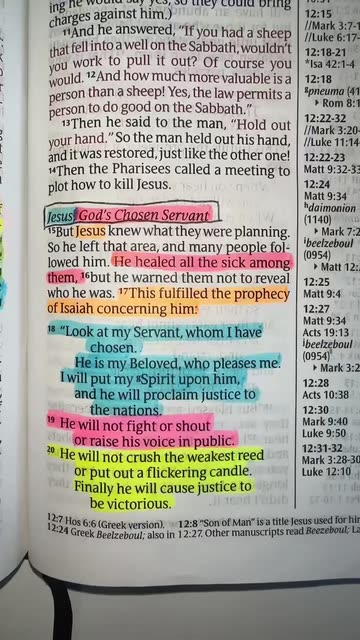 ing he would say yes, so they could bring
charges against him.)
11And he answered, "If you had a sheep
that fell into a well on the Sabbath, wouldn't
you work to pull it out? Of course you
would. 12And how much more valuable is a
person than a sheep! Yes, the law permits a
person to do good on the Sabbath."
13Then he said to the man, "Hold out
your hand." So the man held out his hand,
and it was restored, just like the other one!
14Then the Pharisees called a meeting to
plot how to kill Jesus.
Jesus, God's Chosen Servant
15But Jesus knew what they were planning.
So he left that area, and many people fol-
lowed him. He healed all the sick among
them, 16but he warned them not to reveal
who he was. 17This fulfilled the prophecy
of Isaiah concerning him:
18 "Look at my Servant, whom I have
chosen.
He is my Beloved, who pleases me.
I will put my gSpirit upon him,
and he will proclaim justice to
the nations.
19 He will not fight or shout
or raise his voice in public.
20 He will not crush the weakest reed
or put out a flickering candle.
Finally he will cause justice to
be victorious.
12:7 Hos 6:6 (Greek version). 12:8 "Son of Man" is a title Jesus used for him
12:24 Greek Beelzeboul; also in 12:27. Other manuscripts read Beezeboul; La
12:15
//Mark 3:7-1
//Luke 6:17-
12:18-21
*Isa 42:1-4
12:18
gpneuma (41
Rom 8:1
12:22-32
//Mark 3:20-
//Luke 11:14-
12:22-23
Matt 9:32-33
12:24
Matt 9:34
hdaimonion
(1140)
Mark 5:
ibeelzeboul
(0954)
Matt 12:
12:25
Matt 9:4
12:27
Matt 9:34
Acts 19:13
ibeelzeboul
(0954)
Mark 3:2
12:28
Acts 10:38
12:30
Mark 9:40
Luke 9:50
12:31-32
Mark 3:28-30
Luke 12:10